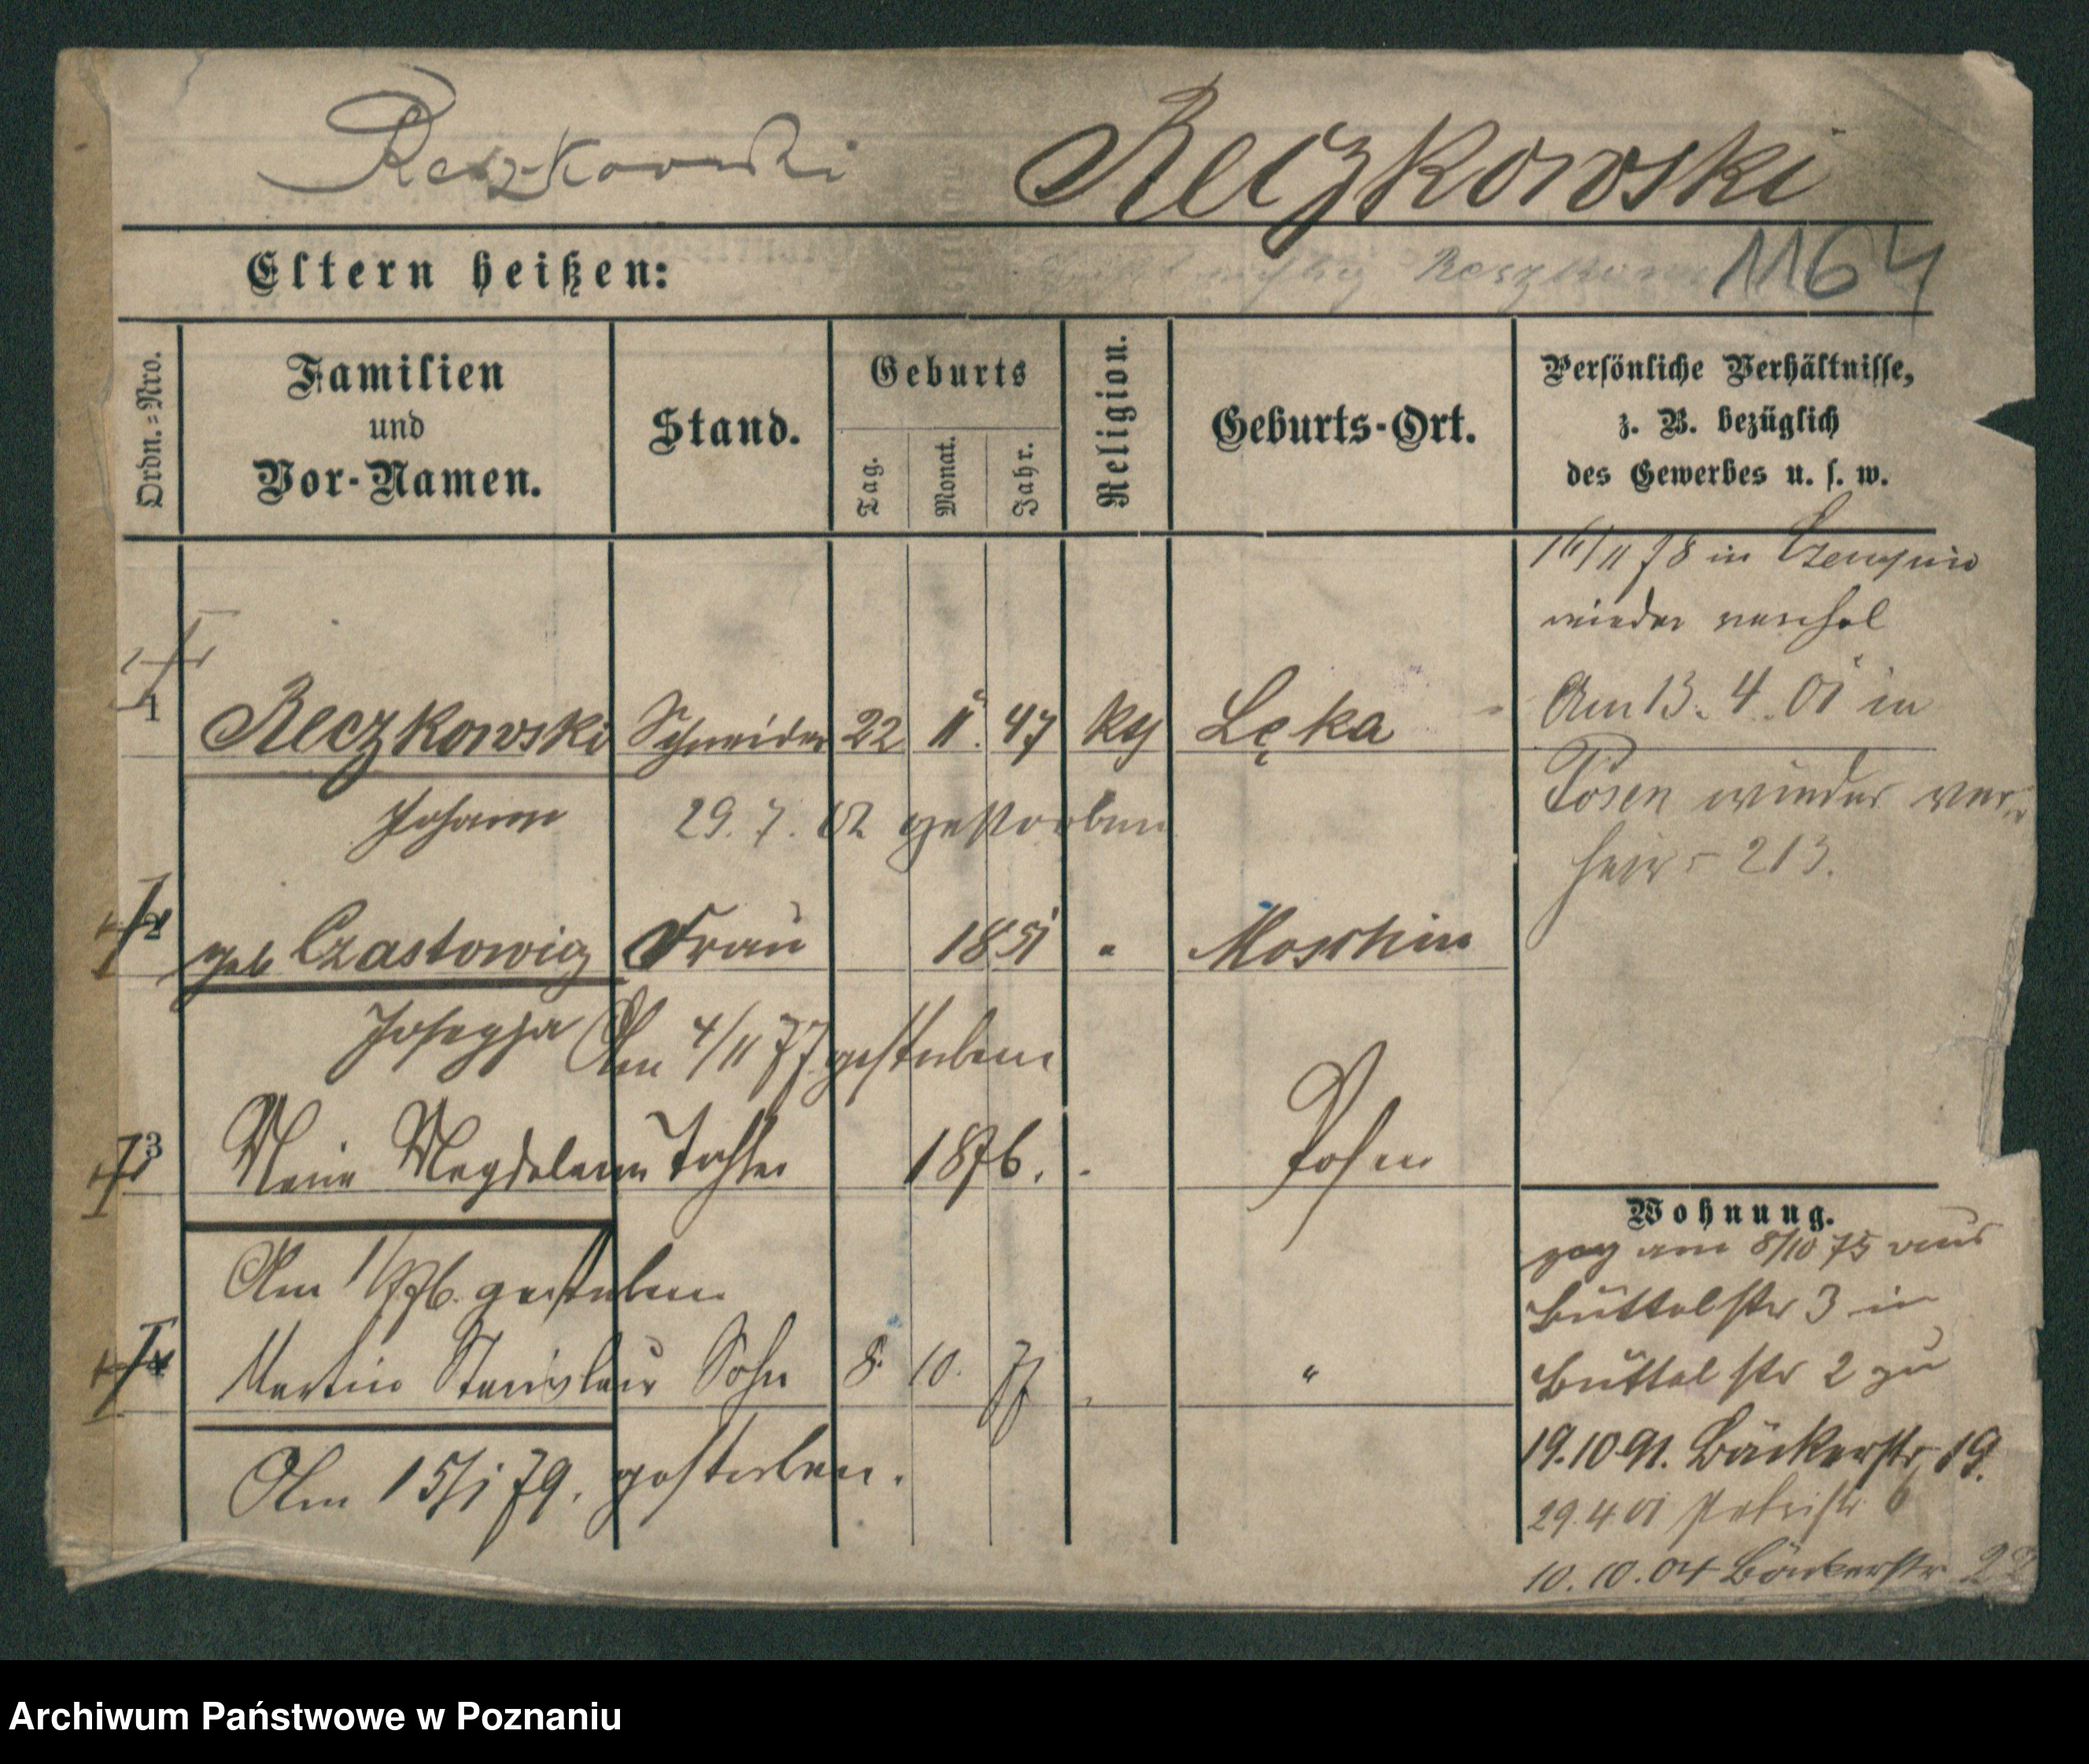 Reczkowski Reczkowski
Eltern heißen: Reszkowski 1164
Ordn.=Nro.
Familien
und
Vor-Namen.
Stand.
Geburts
Tag. Monat. Jahr.
Religion.
Geburts-Ort.
Persönliche Verhältnisse,
z. B. bezüglich
des Gewerbes u. s. w.
in Czempin
wieder
1 Reczkowski Schneider 22 11. 47 Lęka
Am 13. 4. 01 in
Johann 29. 7. 02 gestorben
Posen wieder ver=
213.
2 geb Frau 1851 " Moschin
Josepha Am 4/11 77 gestorben
3 Maria Magdalena Tochter 1876. Posen
Am gestorben
4 Martin Stanislaus Sohn 8. 10. 77 "
Am 15/1 79. gestorben.
Wohnung.
zog am 8/10 75 aus
Büttelstr 3 in
Büttelstr 2 zu
19.10 91. Bäckerstr 19.
29.4 01 Petristr 6
10. 10. 04 Bäckerstr
Archiwum Państwowe w Poznaniu